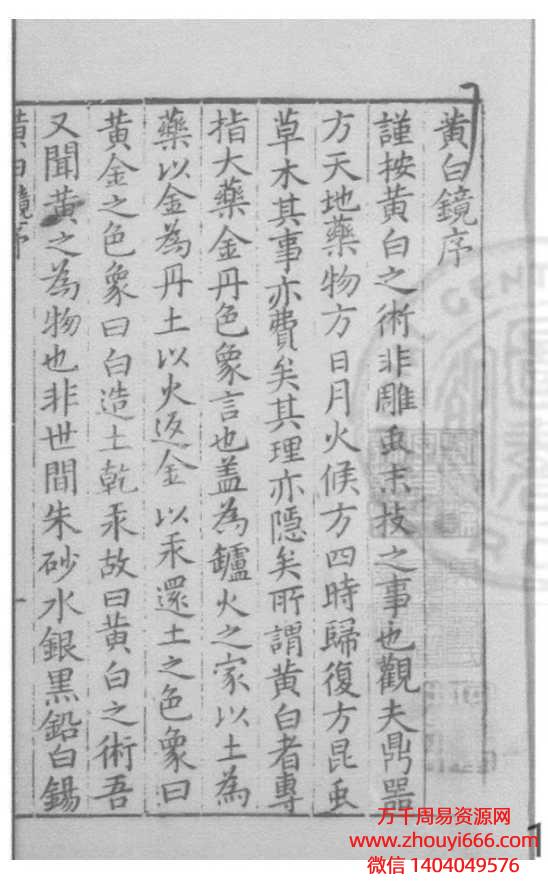 黃白鏡序
謹按黃白之術非雕虫末技之事也觀夫鼎器
方天地藥物方日月火候方四時歸復方昆虫
草木其事亦費矣其理亦隱矣所謂黃白者專
指大藥金丹色象言也盖為鑪火之家以土為
藥以金為丹土以火返金以汞還土之色象曰
黃金之色象曰白造土乾汞故曰黃白之術吾
又聞黃之為物也非世間朱砂水銀黑鉛白錫
黃白鏡序
万千周易资源网
www.zhouyi666.com
微信 1404049576